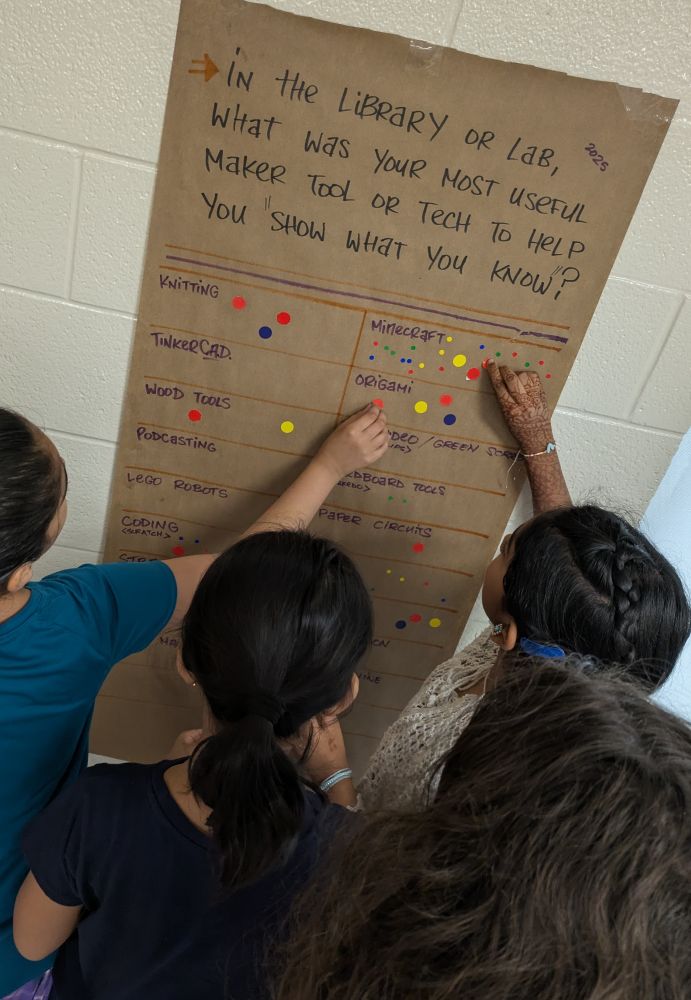 → IN THE LIBRARY OR LAB,
WHAT WAS YOUR MOST USEFUL
MAKER TOOL OR TECH TO HELP
YOU "SHOW WHAT YOU KNOW"?
2025
KNITTING
MINECRAFT
TINKERCAD.
ORIGAMI
WOOD TOOLS
PODCASTING
/GREEN
LEGO ROBOTS
TOOLS
CODING
<SCRATCH>
PAPER CIRCUITS